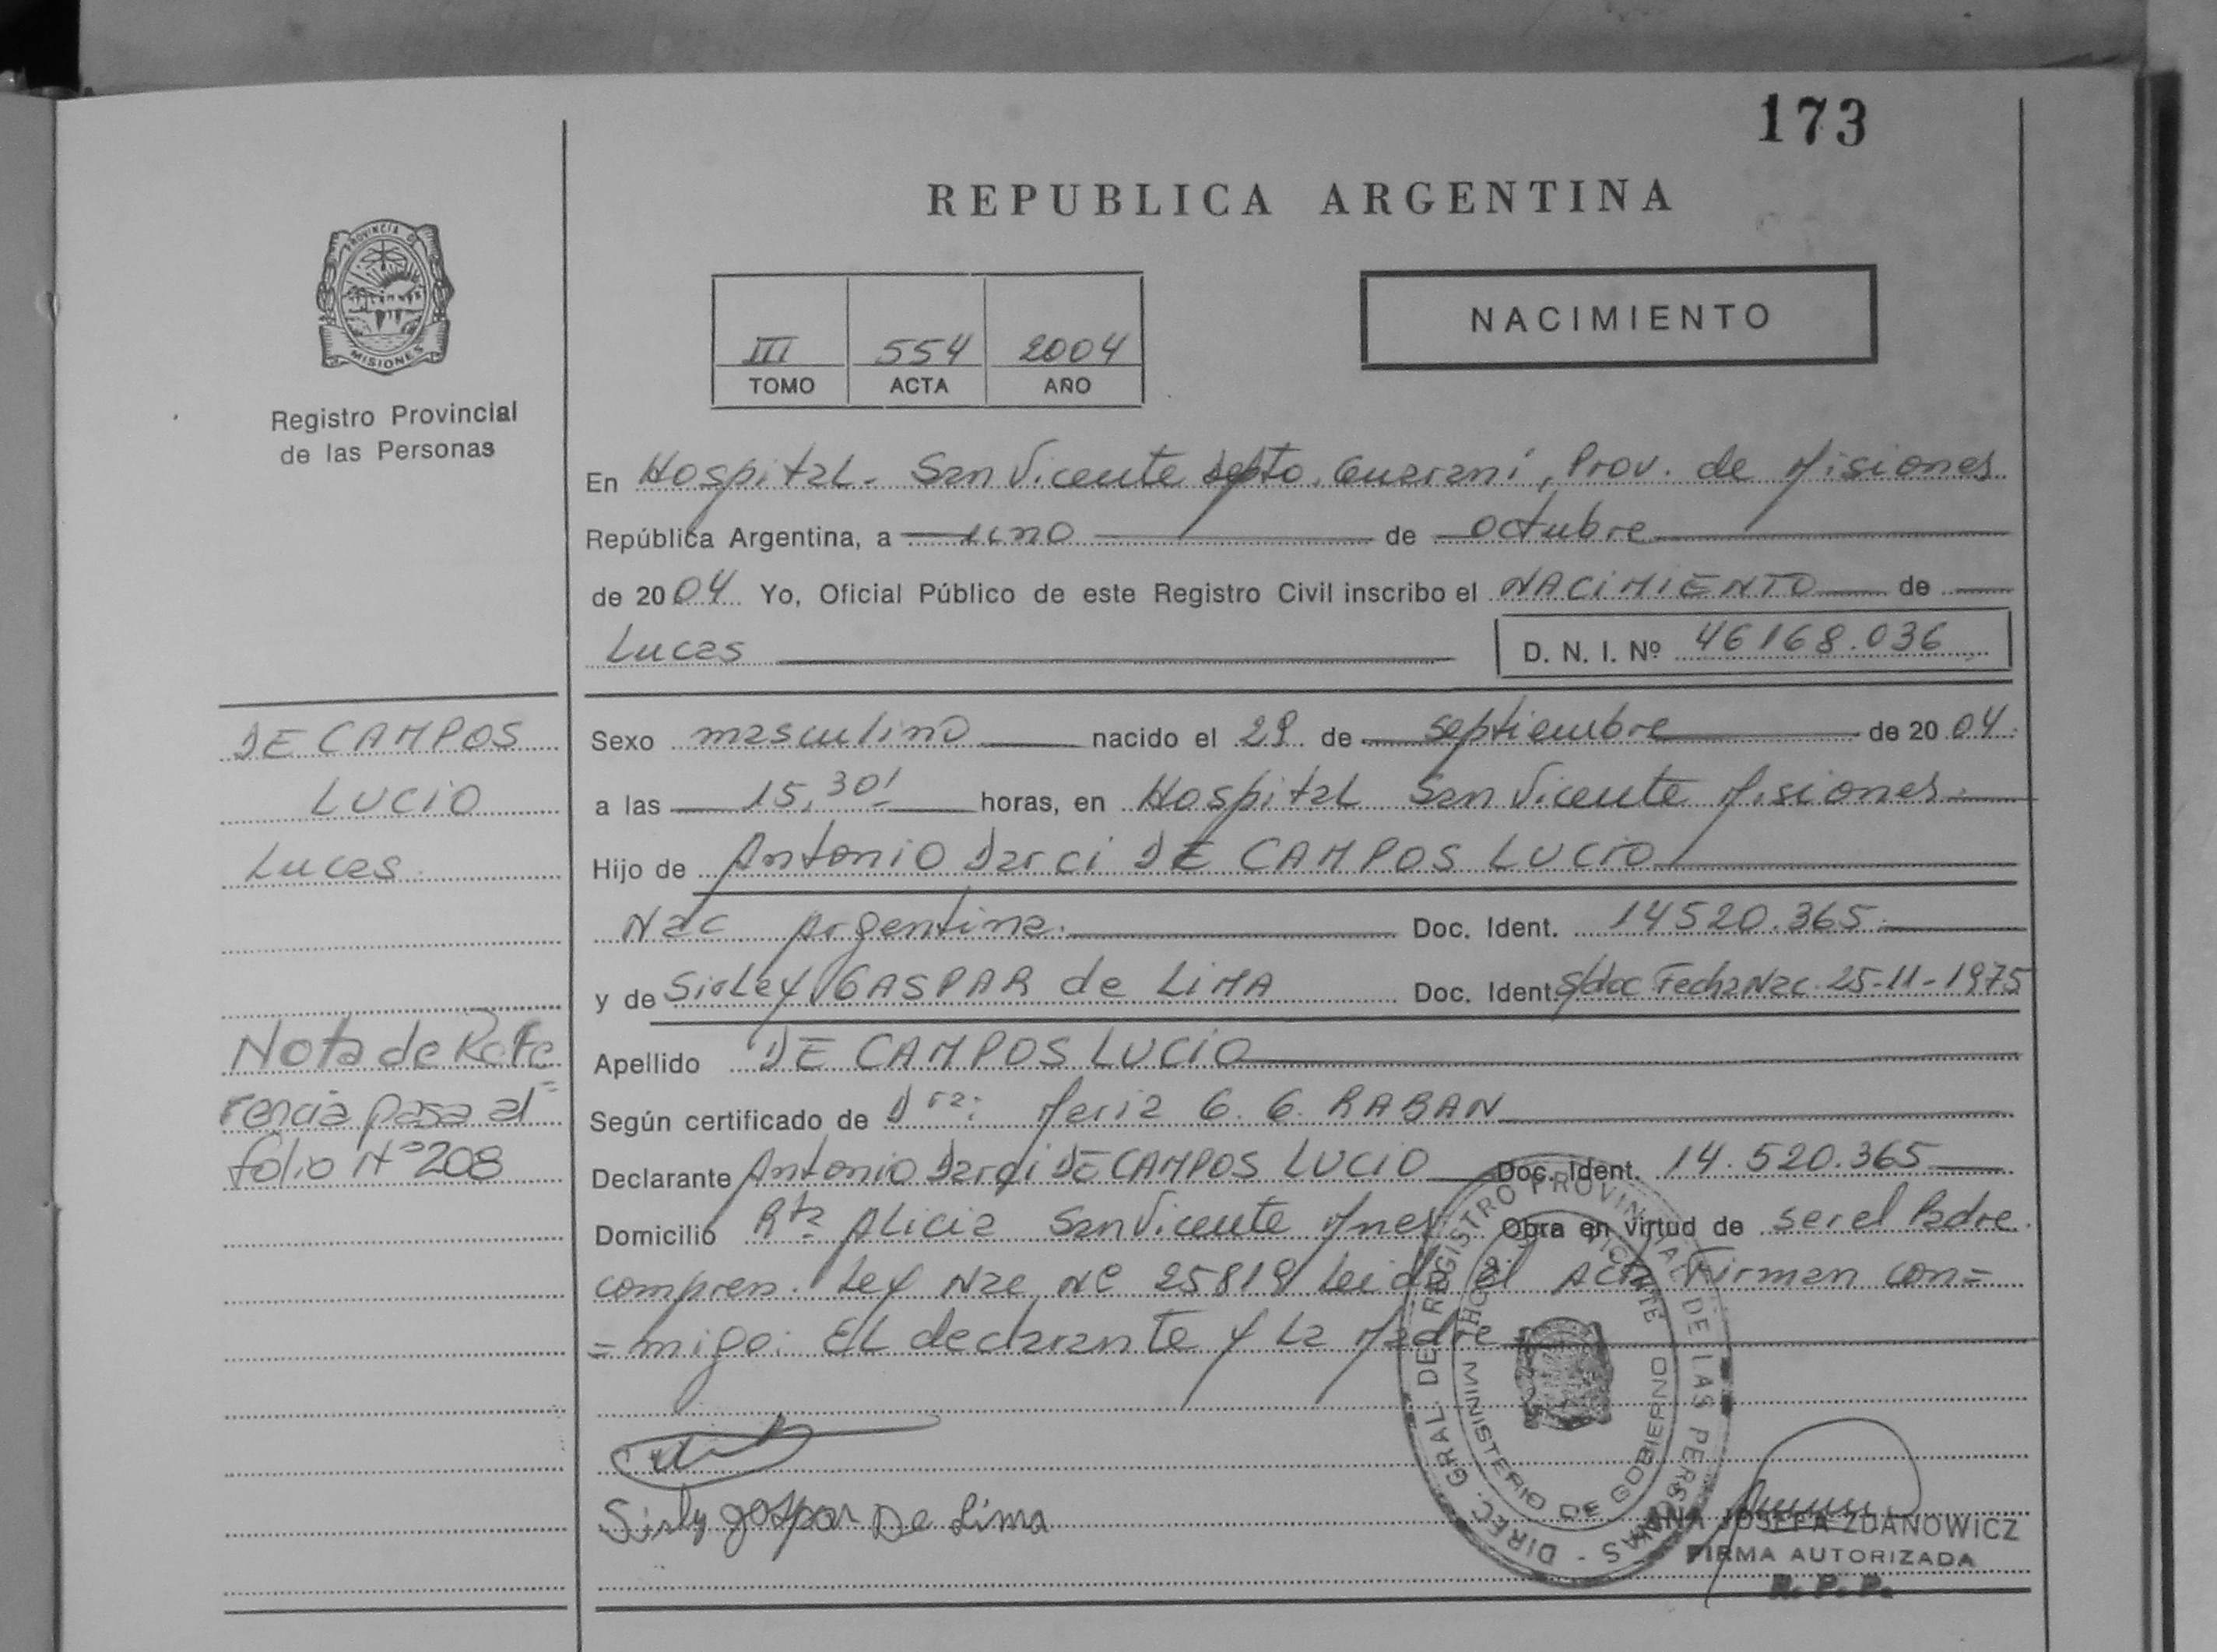 173
REPUBLICA ARGENTINA
PROVINCIA DE
MISIONES
Registro Provincial
de las Personas
III 554 2004
TOMO ACTA AÑO
NACIMIENTO
En Hospital - San Vicente Depto. Guaraní, Prov. de Misiones
República Argentina, a uno de octubre
de 2004 Yo, Oficial Público de este Registro Civil inscribo el NACIMIENTO de
Lucas D. N. I. Nº 46168.036
DE CAMPOS
LUCIO
Lucas
Sexo masculino nacido el 29 de septiembre de 2004
a las 15,30' horas, en Hospital San Vicente Misiones
Hijo de Antonio Darci DE CAMPOS LUCIO
Nac Argentina Doc. Ident. 14520.365
y de Sirley GASPAR de LIMA Doc. Ident S/doc Fecha Nac. 25-11-1975
Nota de Refe
rencia pasa al
folio Nº 208
Apellido DE CAMPOS LUCIO
Según certificado de Dra: Maria G. G. RABAN
Declarante Antonio Darci DE CAMPOS LUCIO Doc. Ident. 14.520.365
Domicilio Rta Alicia San Vicente Mnes Obra en virtud de ser el Padre
compren. Ley Nac Nº 25819 Leida el Acta Firman con=
=migo: EL declarante y La Madre
Sirly gaspar De Lima
DIREC. GRAL. DE REGISTRO PROVINCIAL DE LAS PERSONAS
MINISTERIO DE GOBIERNO
JOSEFA ZDANOWICZ
FIRMA AUTORIZADA
R. P. P.